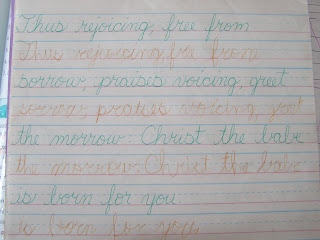 Thus rejoicing, free from
Thus rejoicing, free from
sorrow, praises voicing, greet
sorrow, praises voicing, greet
the morrow: Christ the babe
the morrow: Christ the babe
is born for you.
is born for you.